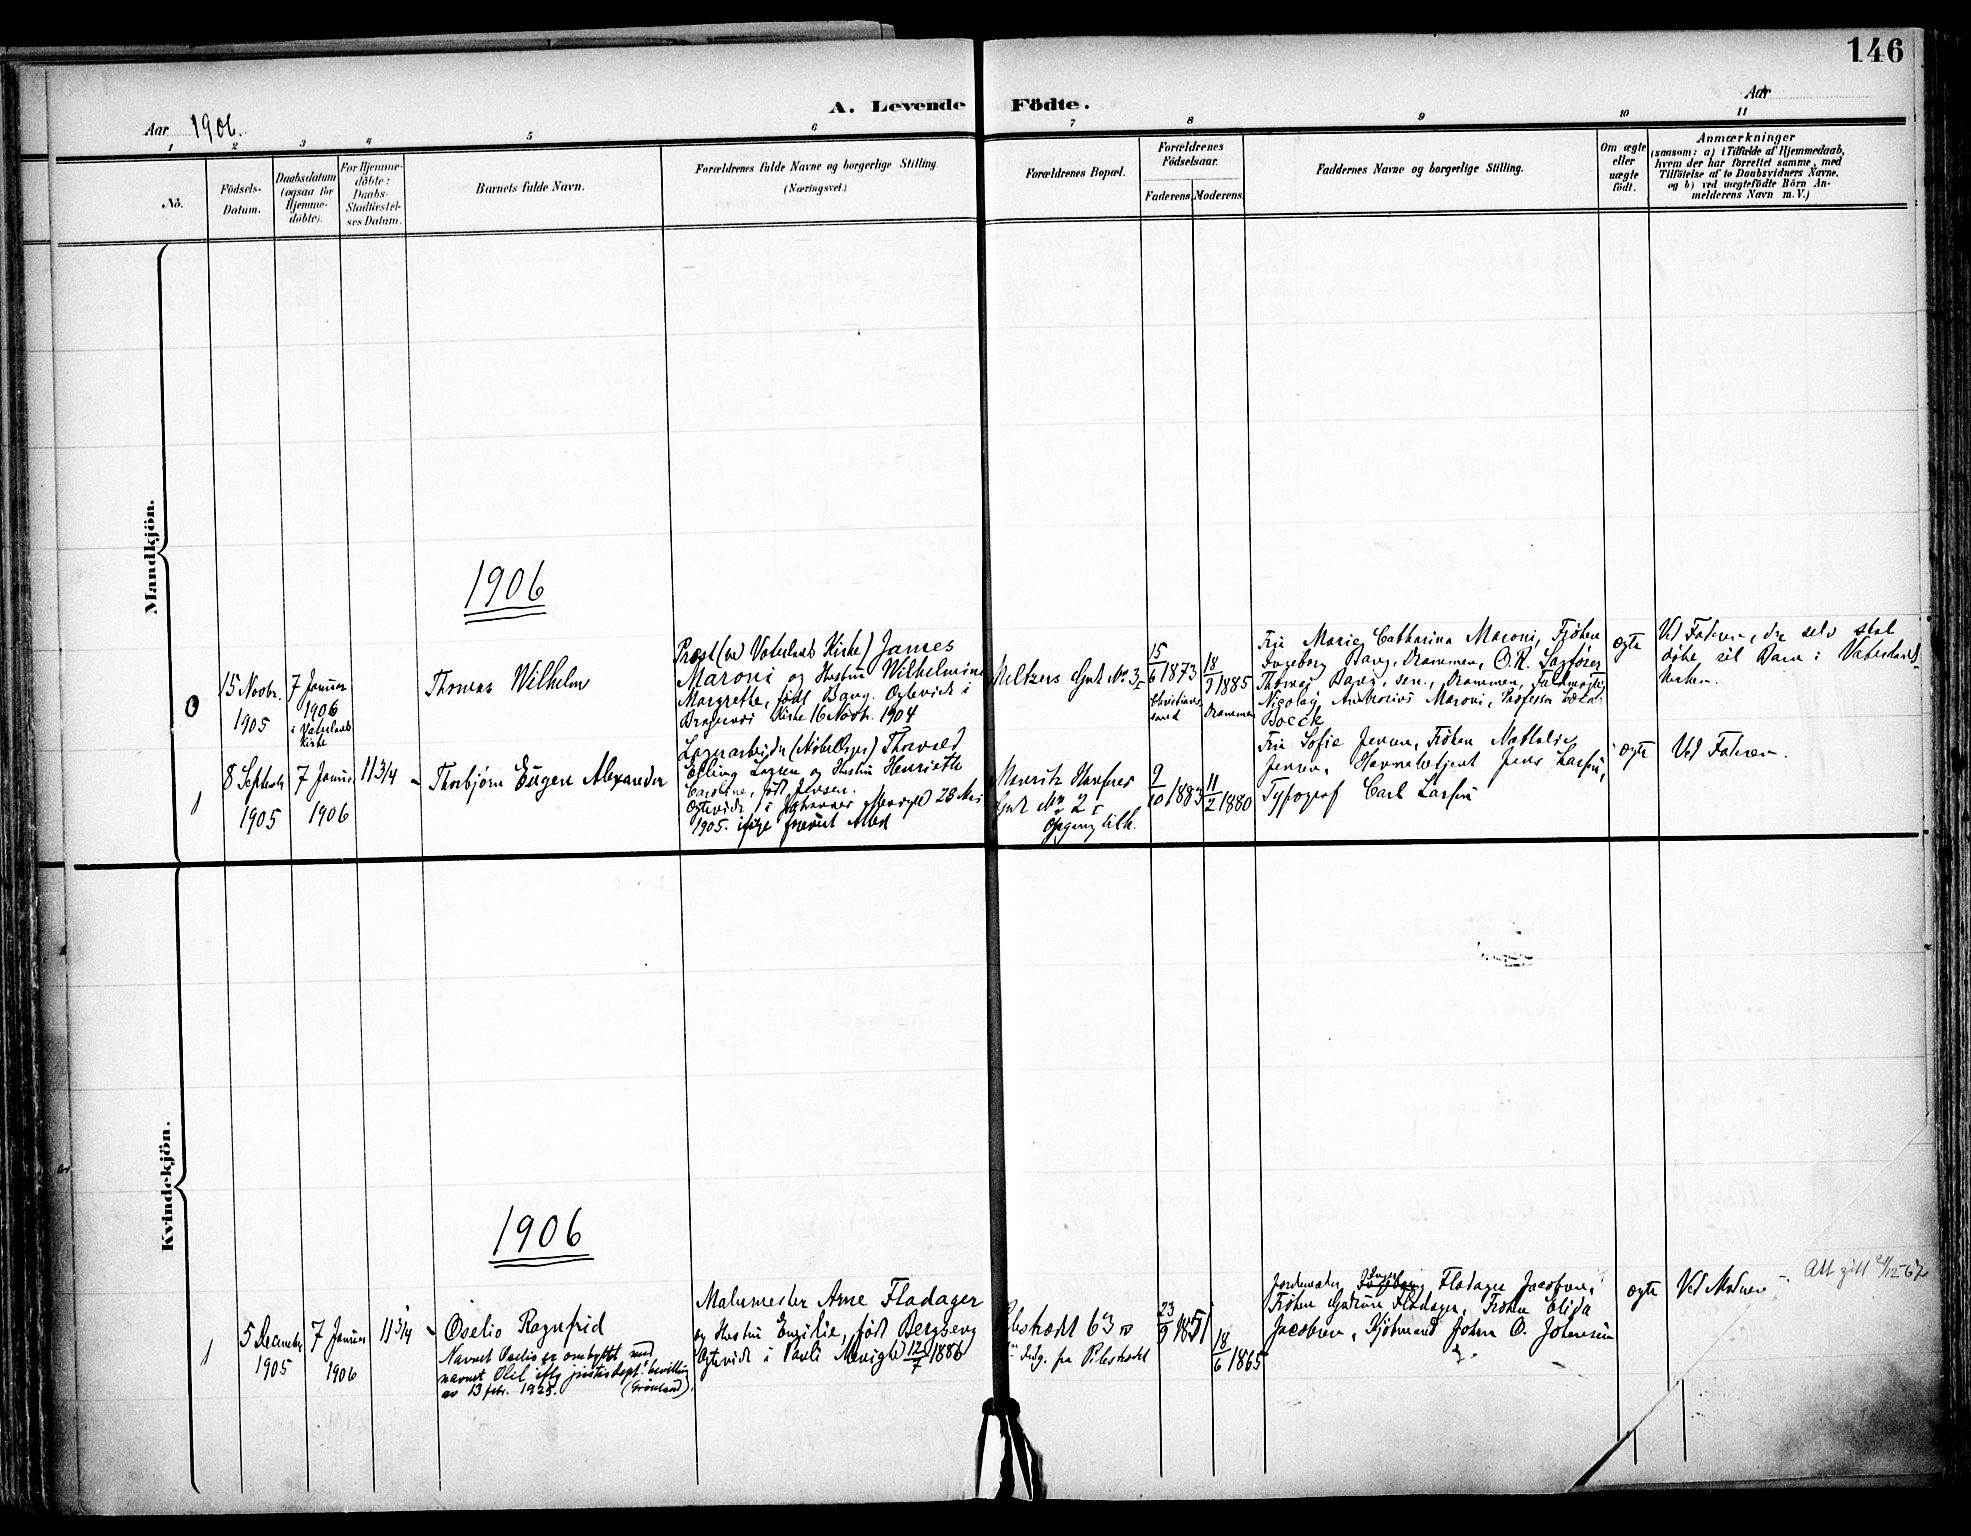 146
A. Levende Födte.
Aar 1906.
Aar
1 2 3 4 5 6 7 8 9 10 11
No.
Födsels-
Datum.
Daabsdatum
(ogsaa for
Hjemme-
döbte).
For Hjemme-
döbte:
Daabs-
Stadfæstel-
ses Datum.
Barnets fulde Navn.
Forældrenes fulde Navne og borgerlige Stilling
(Næringsvei.)
Forældrenes Bopæl.
Forældrenes
Födselsaar.
Faderens Moderens
Faddernes Navne og borgerlige Stilling.
Om ægte
eller
uægte
födt.
Anmærkninger
(saasom: a) i Tilfælde af Hjemmedaab,
hvem der har forrettet samme, med
Tilföielse af to Daabsvidners Navne,
og b) ved uægtefödte Börn An-
melderens Navn m.V.)
Mandkjön.
1906
0
15 Novbr.
1905
7 Januar
1906
i Vaterlands
Kirke
Thomas Wilhelm
Præst (ved Vaterlands Kirke) James
Maroni og Hustru Wilhelmine
Margrethe, født Bang. Ogtevidt i
Bragernes Kirke 16 Novbr. 1904
Meltzers Gade No 3 I
15/6 1873
Christians-
sand
18/9 1885
Drammen
Fru Marie Catharina Maroni, Frøken
Ingeborg Bang, Drammen, O. R.
Thomas Bang, sen., Drammen,
Nicolay Ambrosius Maroni, Professor
Boeck
ægte
Ved Faderen, der selv skal
døbe sit Barn i Vaterlands
kirken.
1
8 Septembr
1905
7 Januar
1906
11 3/4
Thorbjørn Eugen Alexander
Lagerarbeider Thorvald
Erling Larsen og Hustru Henriette
Caroline, født Jensen.
Ogteviede i Johannes Menighed 28 Mai
1905. ikke
Mauritz Hansens
Gade No 2 I
Opgang tilh.
9/10 1883
11/2 1880
Fru Sofie Jensen, Frøken Nathalie
Jensen, Havnebetjent Jens Larsen,
Typograf Carl Larsen
ægte
Ved Faderen.
Kvindekjön.
1906
1
5 December
1905
7 Januar
1906
11 3/4
Oselio Ragnfrid
Navnet Oselio er ombyttet med
navnet Olil iflg justisdept. bevilling
av 13 febr. 1925. (Grönland).
Malermester Arne Fladager
og Hustru Emilie, født Bergseng
Ogtevidt i Pauli Menighed 12/7 1886
Pilestrædet 63 IV
Indg. fra Pilestrædet
23/9 1851
18/6 1865
Jordemoder Fladager Jacobsen,
Frøken Gudrun Fladager, Frøken Elida
Jacobsen, Kjøbmand Johan O. Johansen
ægte
Ved Moderen
Att gitt 21/12-62